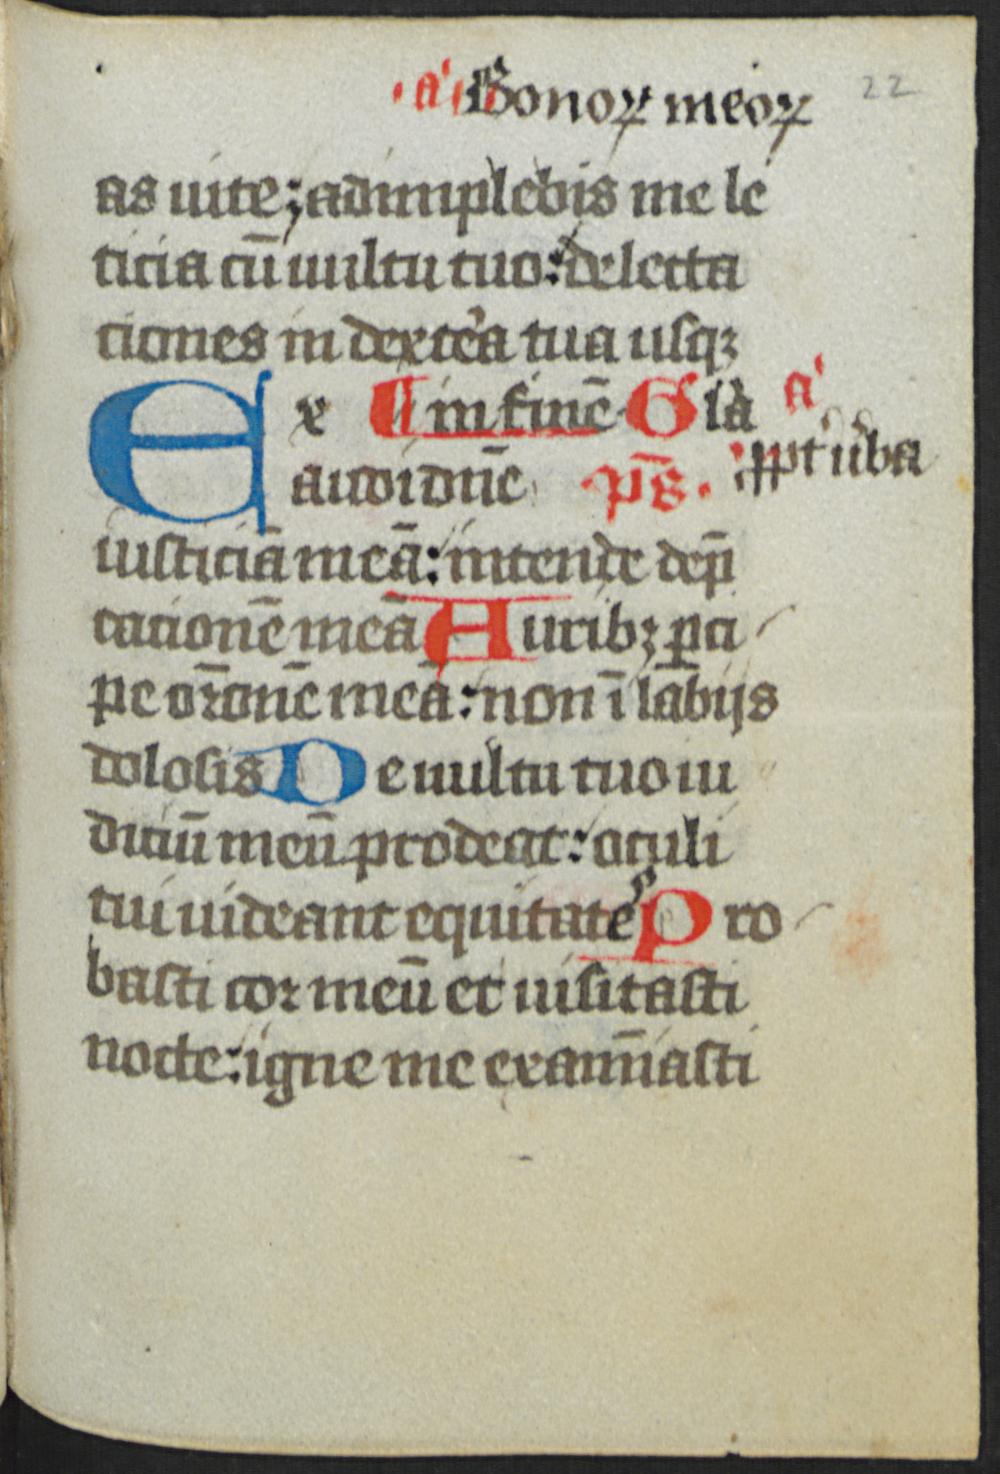 ·a͛· Bonoꝝ meoꝝ
22
as uite; adimplebis me le
ticia cū uultu tuo: delecta
tiones in dexte͛a tua usqꝫ
Ex ¶ in finē Gl̄a a͛
audi dn̄e p̄s. ꝓpt͛ u͛ba
iusticiā meā: intende dep̄
cacionē meā Auribꝫ ꝑci
pe orōnē meā: non ī labijs
dolosis De uultu tuo iu
diciū meū prodeat: oculi
tui uideant equitatē Pro
basti cor meū et uisitasti
nocte: igne me examīasti